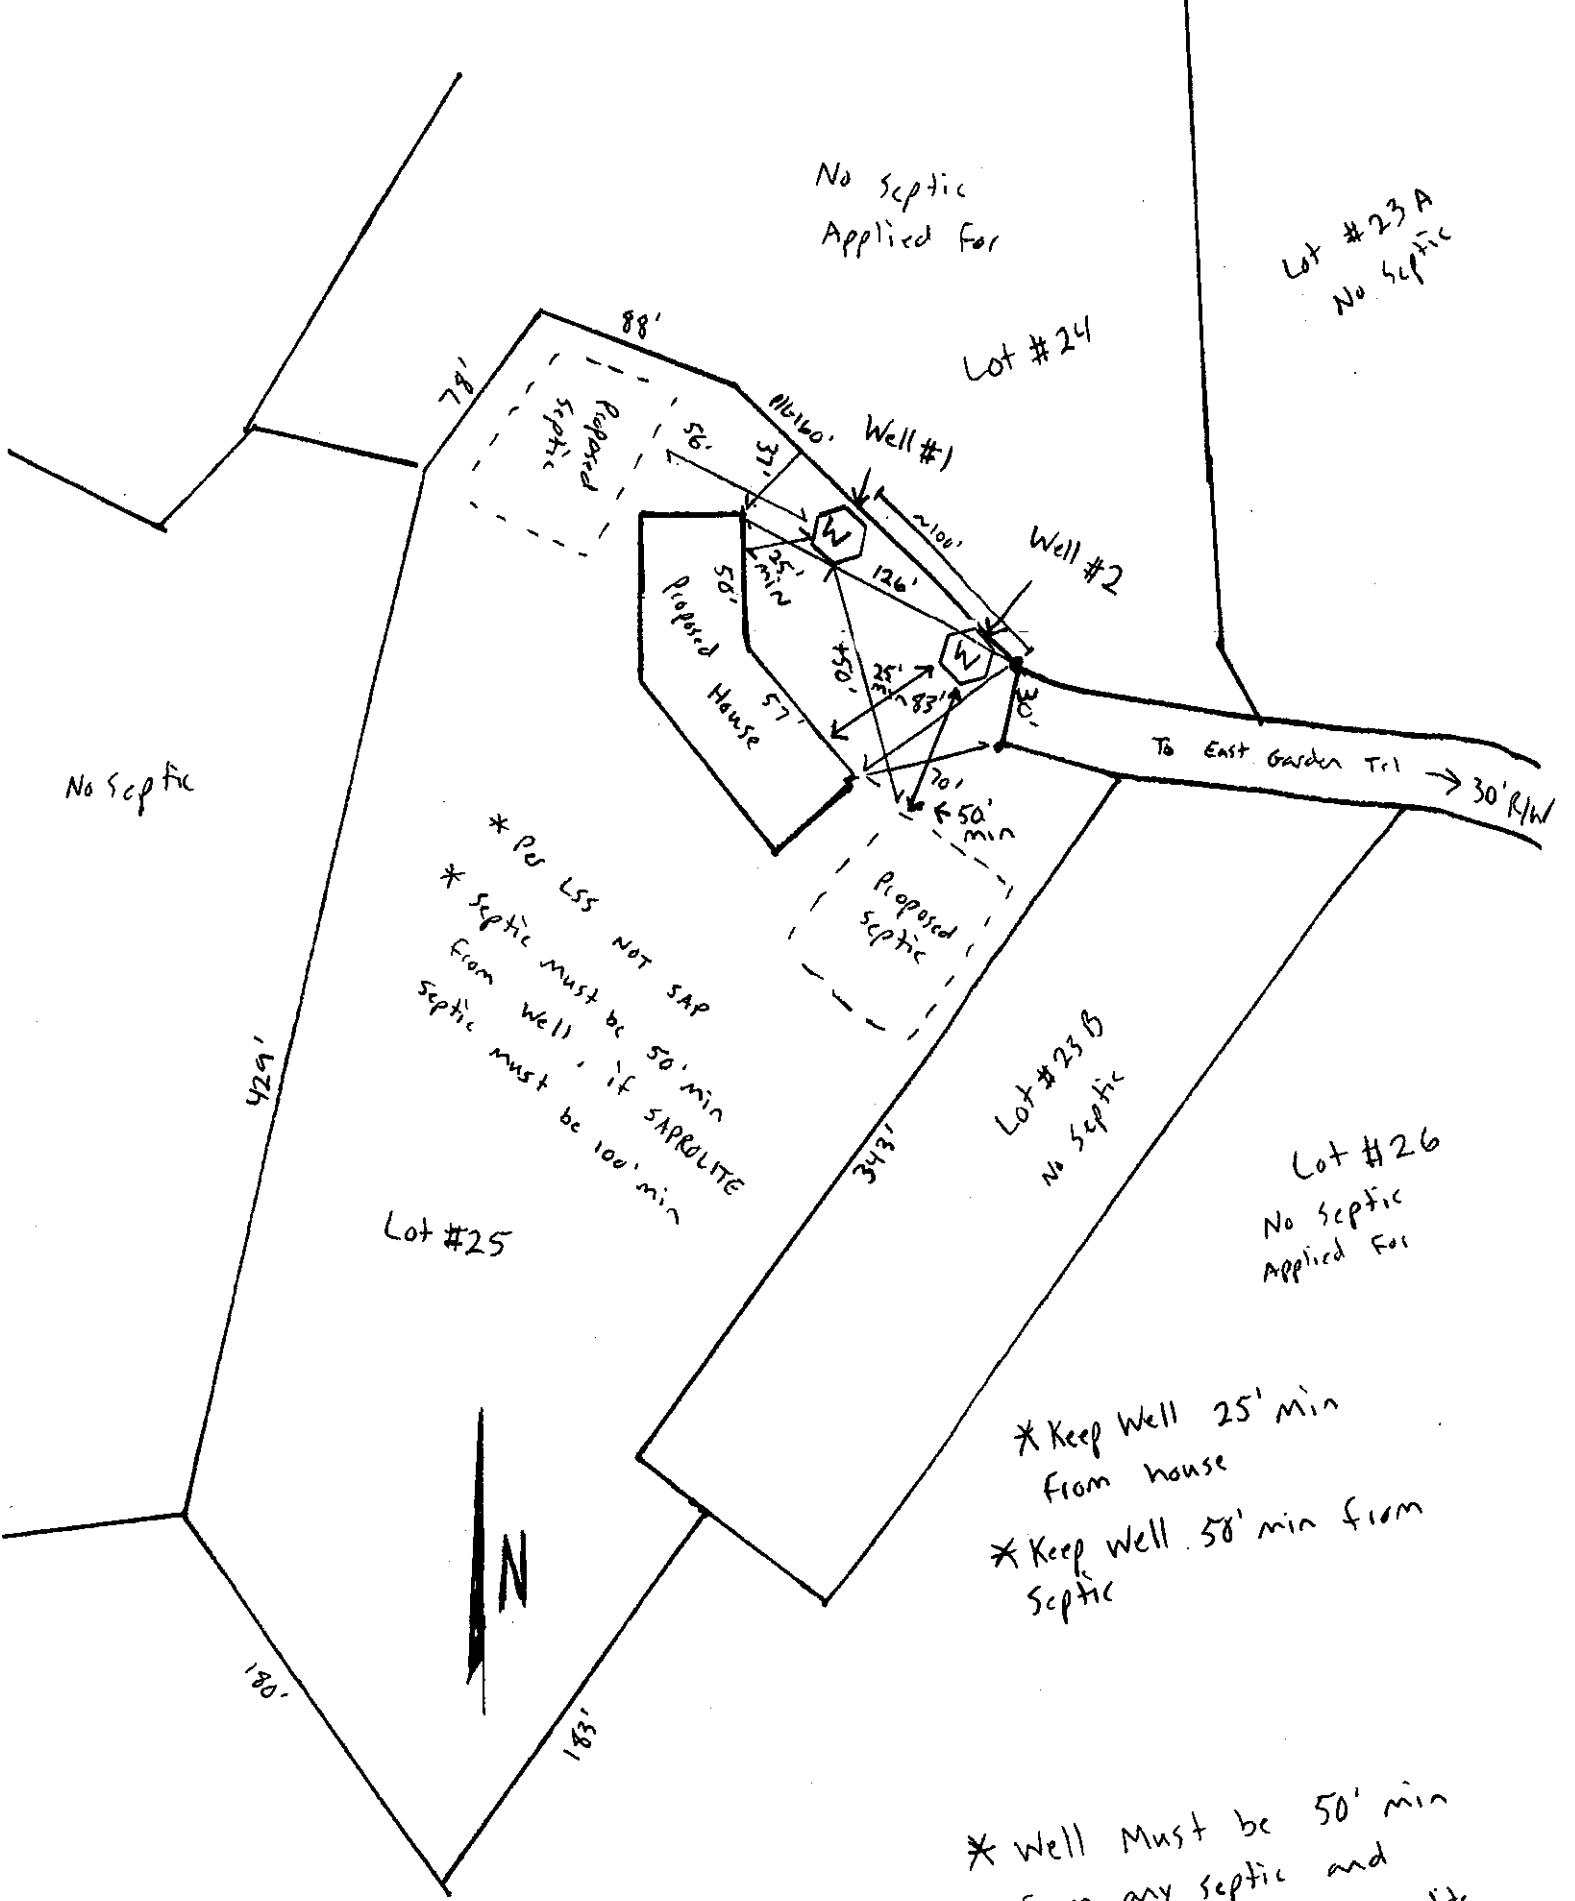 No Septic
Applied For
Lot #23A
No Septic
Lot #24
88'
78'
Proposed
Septic
56'
37'
160'
Well #1
~100'
Well #2
W
25'
min
126'
50'
Proposed
House
57'
+50'
25'
min
83'
W
30'
70'
50'
min
To East Garden Trl → 30' R/W
No Septic
* Per LSS NOT SAP
* Septic must be 50' min
from well, if SAPROLITE
septic must be 100' min
Proposed
Septic
429'
343'
Lot #23B
No Septic
Lot #25
Lot #26
No Septic
Applied For
N
* Keep Well 25' min
from house
* Keep Well 50' min from
Septic
180'
183'
* Well Must be 50' min
any septic and